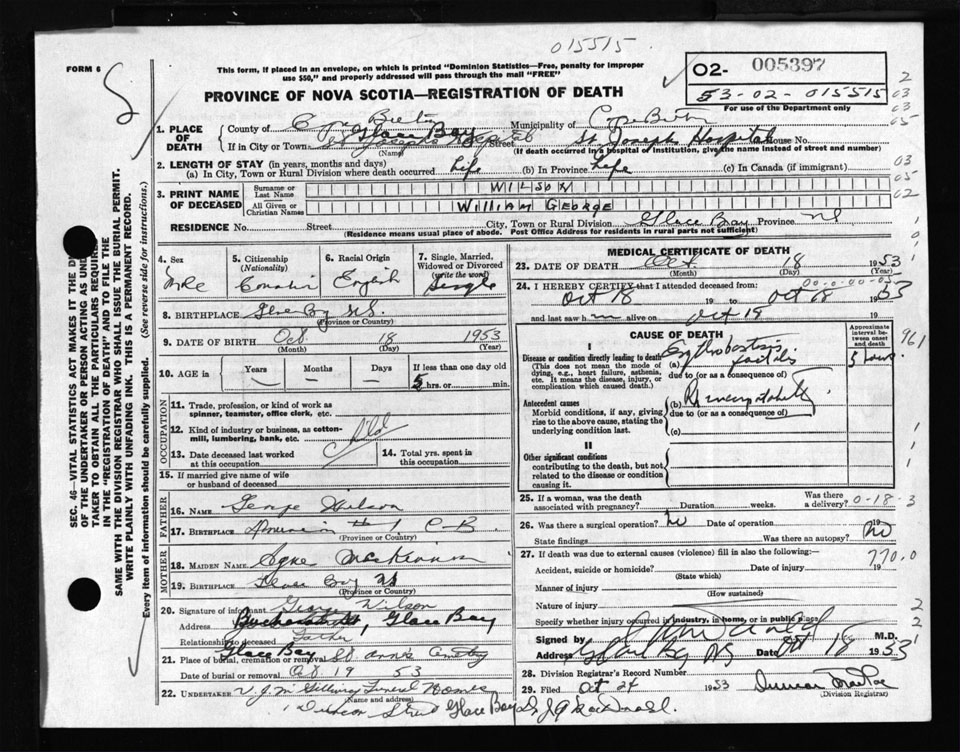 015515.
FORM 6
This form, if placed in an envelope, on which is printed "Dominion Statistics—Free, penalty for improper use $50," and properly addressed will pass through the mail "FREE"
02- 005397
53-02-015515
For use of the Department only
PROVINCE OF NOVA SCOTIA—REGISTRATION OF DEATH
SEC. 46—VITAL STATISTICS ACT MAKES IT THE D
OF THE UNDERTAKER OR PERSON ACTING AS UND
TAKER TO OBTAIN ALL THE PARTICULARS REQUIRE
IN THE "REGISTRATION OF DEATH" AND TO FILE THE
SAME WITH THE DIVISION REGISTRAR WHO SHALL ISSUE THE BURIAL PERMIT.
WRITE PLAINLY WITH UNFADING INK. THIS IS A PERMANENT RECORD.
Every item of information should be carefully supplied. (See reverse side for instructions.)
1. PLACE OF DEATH
County of Cape Breton Municipality of Cape Breton
If in City or Town Glace Bay Street St. Joseph Hospital House No.
(Name) (If death occurred in a hospital or institution, give the name instead of street and number)
2. LENGTH OF STAY (in years, months and days)
(a) In City, Town or Rural Division where death occurred Life (b) In Province Life (c) In Canada (if immigrant)
3. PRINT NAME OF DECEASED
Surname or Last Name WILSON
All Given or Christian Names WILLIAM GEORGE
RESIDENCE No. Street City, Town or Rural Division Glace Bay Province NS
(Residence means usual place of abode. Post Office Address for residents in rural parts not sufficient)
4. Sex Male
5. Citizenship (Nationality)
6. Racial Origin English
7. Single, Married, Widowed or Divorced (write the word) Single
8. BIRTHPLACE Glace Bay N.S.
(Province or Country)
9. DATE OF BIRTH Oct 18 1953
(Month) (Day) (Year)
10. AGE in Years Months Days If less than one day old
5 hrs. or min.
OCCUPATION
11. Trade, profession, or kind of work as spinner, teamster, office clerk, etc.
12. Kind of industry or business, as cotton-mill, lumbering, bank, etc. Child
13. Date deceased last worked at this occupation
14. Total yrs. spent in this occupation
15. If married give name of wife or husband of deceased
FATHER
16. NAME George Wilson
17. BIRTHPLACE # 1 C-B.
(Province or Country)
MOTHER
18. MAIDEN NAME
19. BIRTHPLACE Glace Bay NS
(Province or Country)
20. Signature of informant George Wilson
Address Glace Bay
Relationship to deceased Father
Glace Bay
21. Place of burial, cremation or removal St Annes Cemetery
Date of burial or removal Oct 19 53
22. UNDERTAKER V.J. McGillivray Funeral Homes
(Name and address)
Street Glace Bay
MEDICAL CERTIFICATE OF DEATH
23. DATE OF DEATH Oct. 18 1953
(Month) (Day) (Year)
24. I HEREBY CERTIFY that I attended deceased from:
Oct 18 19 to Oct 18 1953
and last saw him alive on Oct 18 19
CAUSE OF DEATH
Approximate interval between onset and death
I
Disease or condition directly leading to death
(This does not mean the mode of dying, e.g., heart failure, asthenia, etc. It means the disease, injury, or complication which caused death.)
(a) Erythroblastosis foetalis 5 hours
due to (or as a consequence of)
Antecedent causes
Morbid conditions, if any, giving rise to the above cause, stating the underlying condition last.
(b) Rh incompatability
due to (or as a consequence of)
(c)
II
Other significant conditions
contributing to the death, but not related to the disease or condition causing it.
25. If a woman, was the death associated with pregnancy? Duration weeks. Was there a delivery?
0-18-3
26. Was there a surgical operation? No Date of operation 19
State findings Was there an autopsy? No
27. If death was due to external causes (violence) fill in also the following:
770.0
Accident, suicide or homicide? Date of injury 19
(State which)
Manner of injury
(How sustained)
Nature of injury
Specify whether injury occurred in industry, in home, or in public place
Signed by M.D.
Address Glace Bay NS Date Oct 18 1953
28. Division Registrar's Record Number
29. Filed Oct 24 1953 Duncan
(Division Registrar)